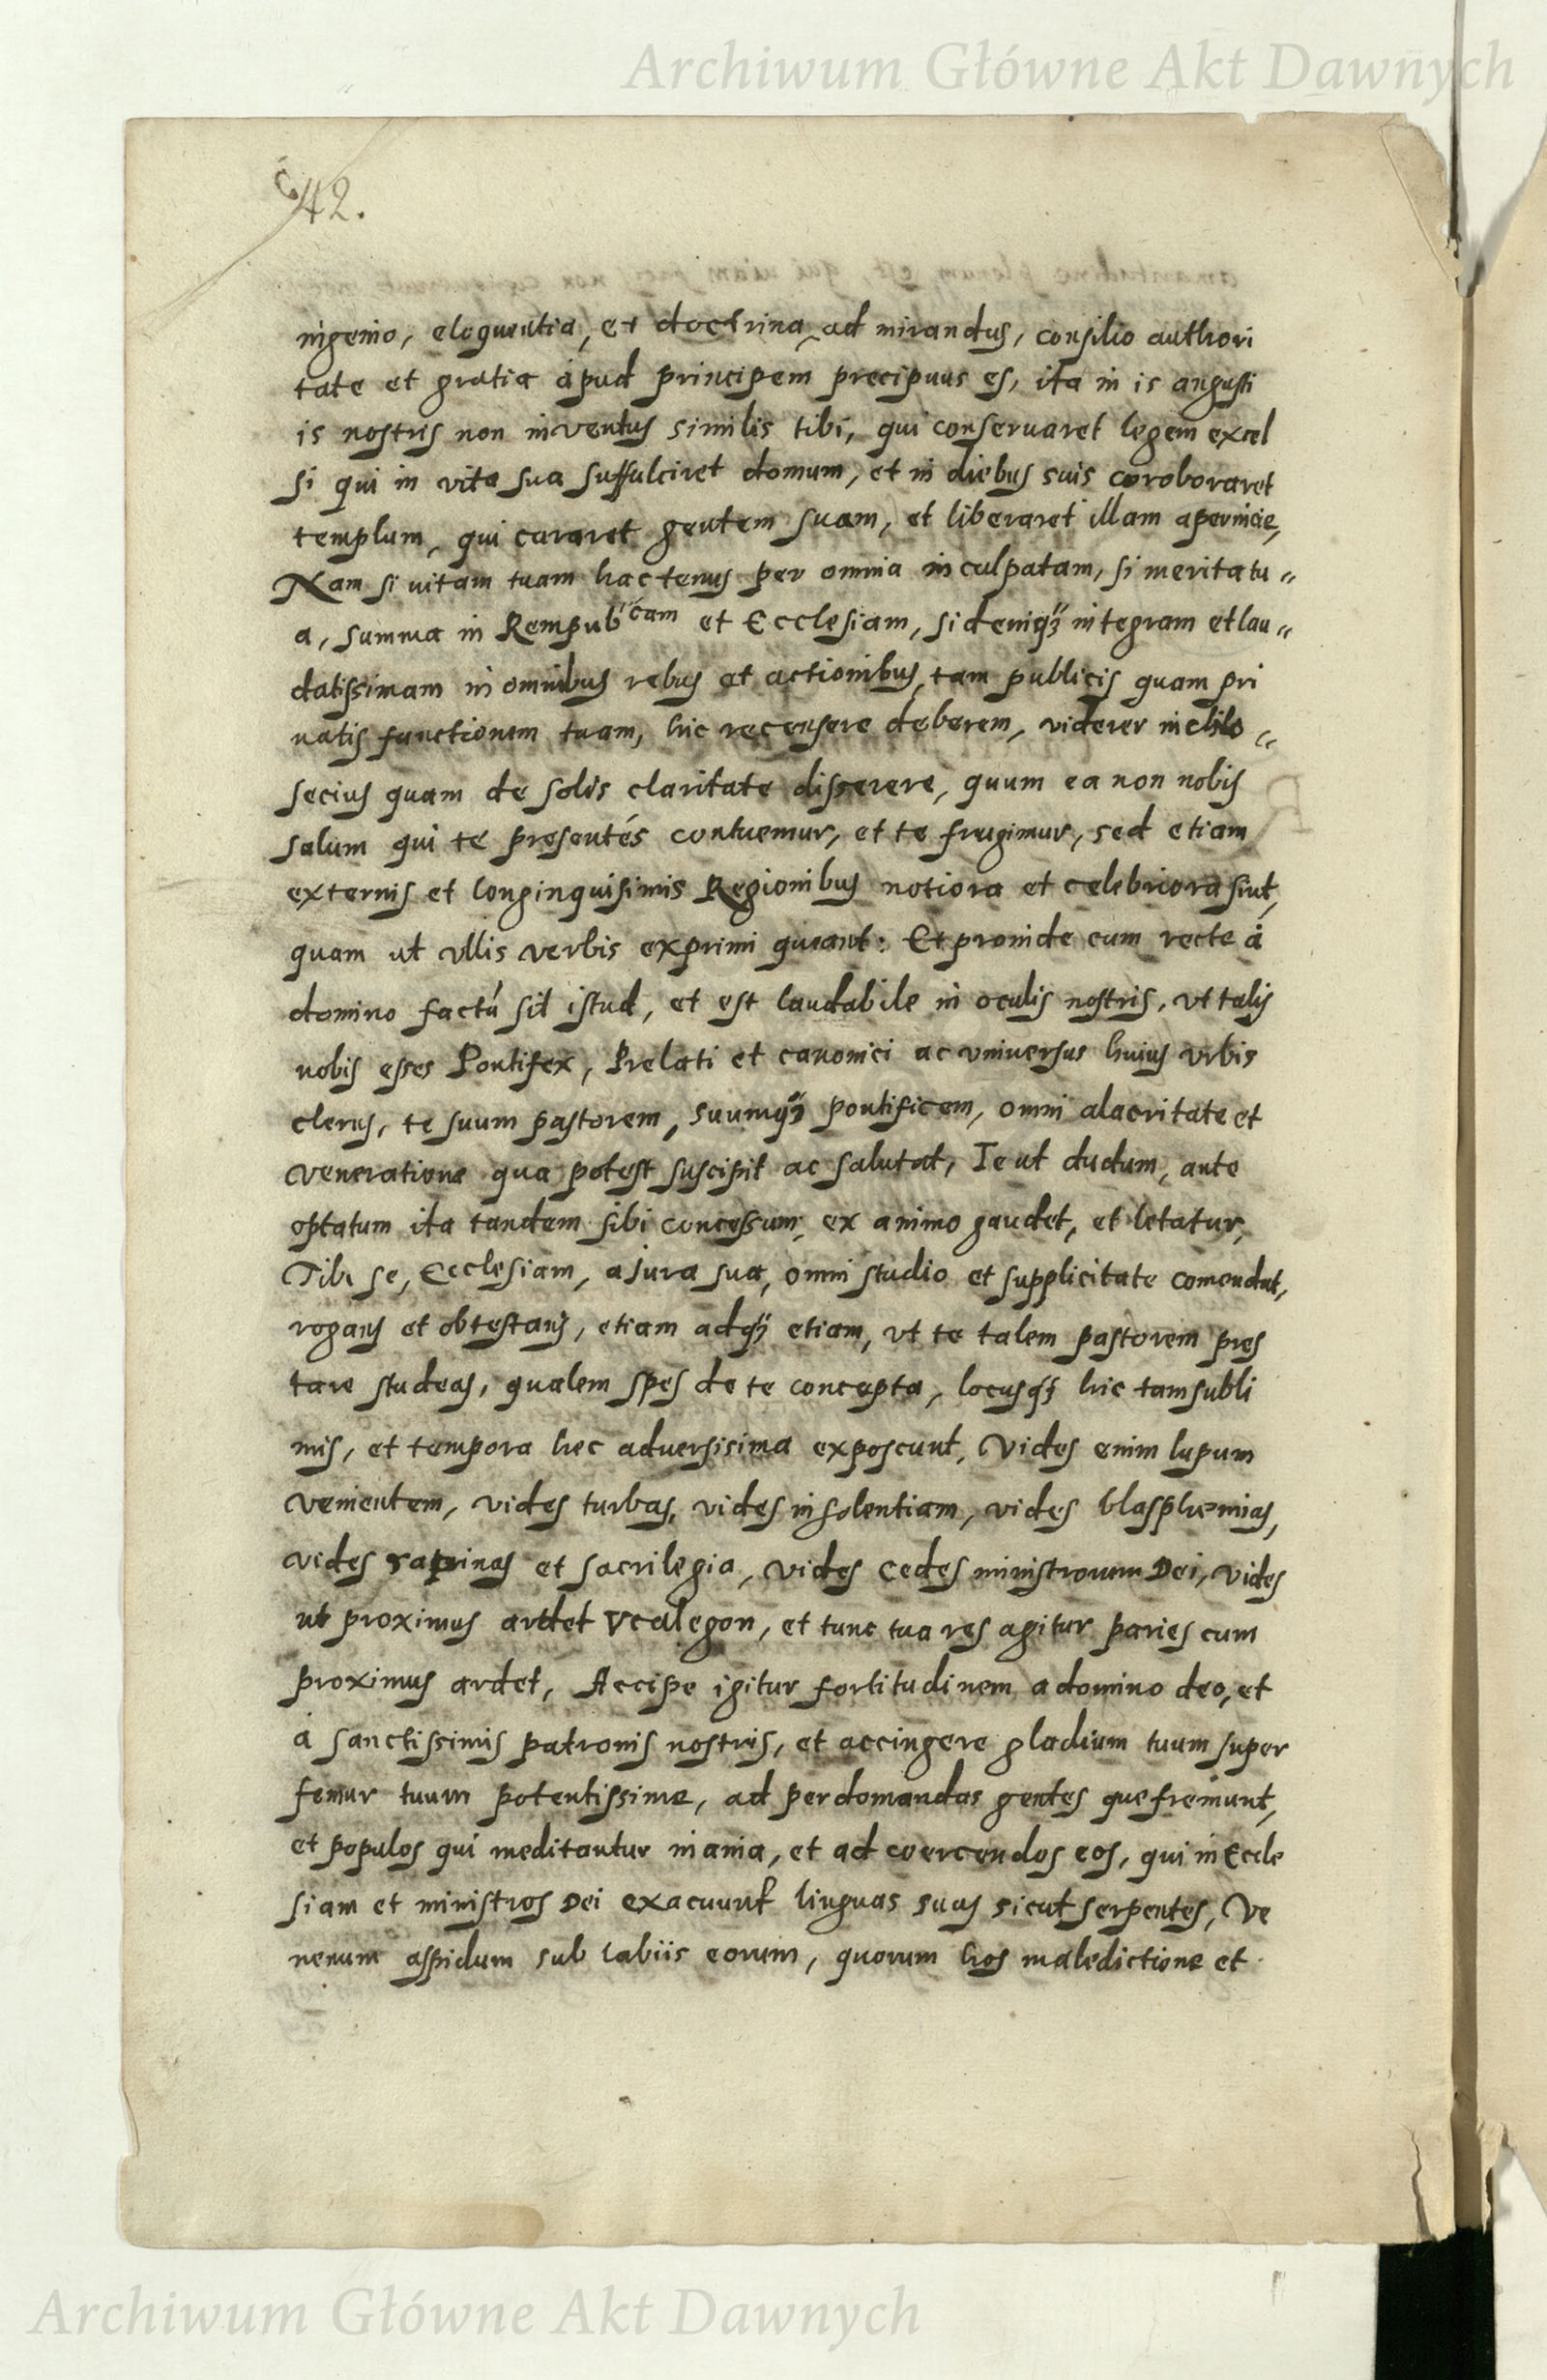 Archiwum Główne Akt Dawnych
42.
ingenio, eloquentia, et doctrina ad mirandus, consilio authori
tate et gratia ápud principem precipuus es, ita in is angusti
is nostris non inventus similis tibi, qui conservaret legem excel
si qui in vita sua suffulciret domum, et in diebus suis coroboraret
templum, qui curaret gentem suam, et liberaret illam apernicie,
Nam si vitam tuam hactenus per omnia inculpatam, si merita tu〃
a, summa in Rempubcam et Ecclesiam, si deniqꝫ integram et lau〃
datissimam in omnibus rebus et actionibus, tam publicis quam pri
uatis functionem tuam, hic recensere deberem, viderer nichilo〃
secius quam de solis claritate disserere, quum ea non nobis
salum qui té presentés contuemur, et te frugimur, sed etiam
externis et longinquisimis Regionibus notiora et celebriora sint,
quam ut vllis verbis exprimi queant: Et proinde cum recte á
domino factú sit istud, et est laudabile in oculis nostris, vt talis
nobis esses Pontifex, Prelati et canonici ac vniuersus huius vrbis
clerus, te suum pastorem, suumqꝫ pontificem, omni alacritate et
veneratione qua potest suscipit ac salutat, Te ut dudum, ante
optatum ita tandem sibi concessum, ex animo gaudet, et letatur,
Tibi se, Ecclesiam, ajura sua, omni studio et supplicitate comendat,
rogans et obtestans, etiam adqꝫ etiam, vt te talem pastorem pres
tare studeas, qualem spes de te concepta, locusqꝫ hic tam subli
mis, et tempora hec aduersisima exposcunt, Vides enim lupum
venientem, vides turbas, vides insolentiam, vides blasphemias,
vides rapinas et sacrilegia, vides cedes ministrorum Dei, vides
ut proximus ardet Vcalegon, et tunc tua res agitur paries cum
proximus ardet, Accipe igitur fortitudinem a domino deo, et
á sanctissimis patronis nostris, et accingere gladium tuum super
femur tuum potentissime, ad perdomandas gentes que fremunt,
et populos qui meditantur inania, et ad coercendos eos, qui in Eccle
siam et ministros Dei exacuunt linguas suas sicut serpentes, Ve
nenum aspidum sub labiis eorum, quorum hos maledictione et
Archiwum Główne Akt Dawnych